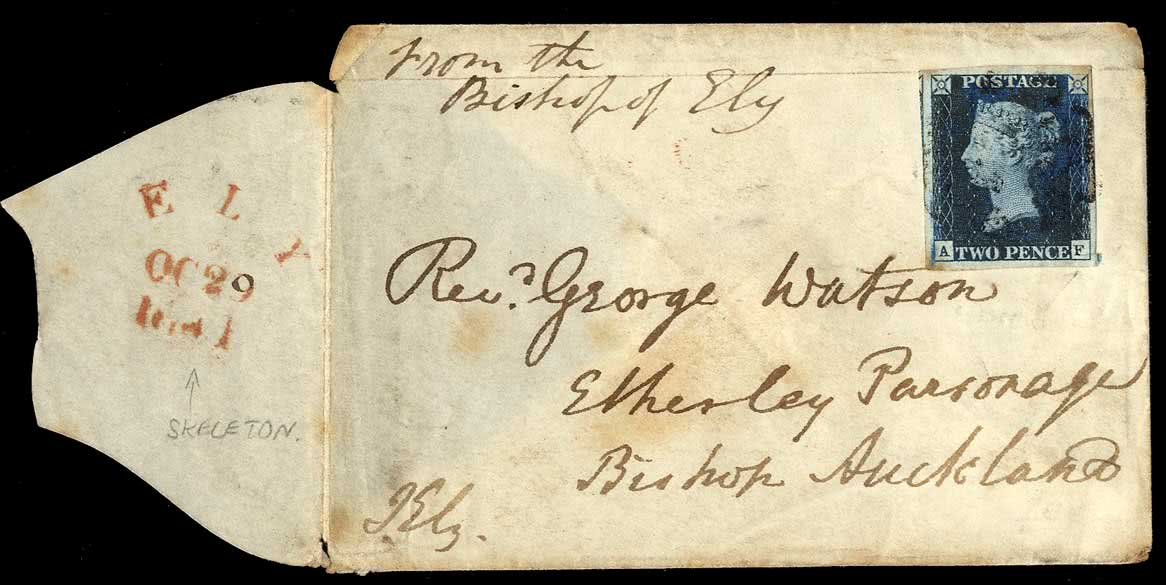 From the
Bishop of Ely
POSTAGE
A TWO PENCE F
Revd. George Watson
Etherley Parsonage
Bishop Auckland
J Ely.
ELY
OC 29
1841
SKELETON.